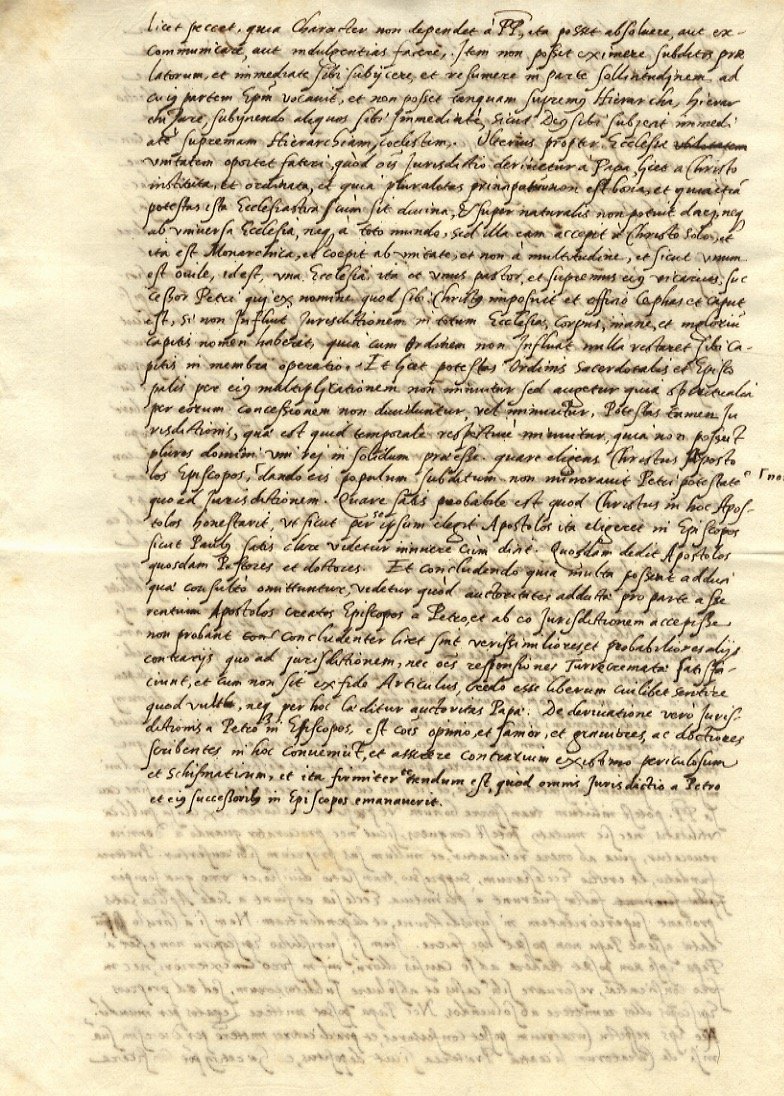 licet peccet, quia Character non dependet à PP, ita posset absoluere, aut ex-
communicare, aut indulgentias facere, Item non posset eximere subditos præ
latorum, et immediate sibi subijcere, et resumere in parte sollicitudinem ad
cuiꝰ partem Ep̃m vocauit, et non posset tanquam supremꝰ Hierarcha, Hierar
chũ Jure, subijnendo aliquos sibi Immediatè, sicut Deꝰ sibi subiecit immedi
atè supremam Hierarchiam, coelestem. Vlterius propter Ecclesiæ
vnitatem oportet fateri, quod oĩs Jurisdictio deriuetur à Papa, licet a Christo
instituta, et ordinata, et quia pluralitas principatuum non est bona, et quia etiã
potestas ista Ecclesiastica sicum sit diuina, et super naturalis non potuit dari, neq̃
ab vniuersa Ecclesia, neq̃ à toto mundo, sed illa eam accepit à Christo solo, et
ita est Monarchica, et coepit ab vnitate, et non à multitudine, et sicut vnum
est ouile, id est, vna Ecclesia ita et vnus pastor, et supremus eiꝰ vicarius, suc
cessor Petri qui ex nomine quod sibi Christꝰ imposuit et officio Cephas et Caput
est, si non Influit Jurisdictionem in totum Ecclesiæ, Corpus, inane, et
capitis nomen haberet, quia cum Ordinem non Influat nulla restaret sibi Ca-
pitis in membra operatio. Et licet potestas Ordinis Sacerdotalis et Episco
palis per eiꝰ multiplicationem non minuitur sed augetur quia spiritualia
per eorum concessionem non diuiduntur, vel minuuntur, Potestas tamen Ju
risdictionis, quæ est quid temporale respectiuè minuitur, quia non possunt
plures domini vni rej in solidum præesse. quare eligens Christus Aposto
los Episcopos, dando eis populum subditum non minorauit Petri potestatẽ
quo ad Jurisdictionem. Quare satis probabile est quod Christus in hoc Apos-
tolos honestarit, vt sicut per se ipsum elegit Apostolos ita eligeret in Episcopos
sicut Paulꝰ satis clare videtur innuere cùm dixit. Quosdam dedit Apostolos
quosdam Pastores et doctores. Et concludendo quia multa possent adduci
quæ consultò omittuntur, videtur quòd auctoritates adductæ pro parte asse
rentium Apostolos creatos Episcopos à Petro, et ab eo Jurisdictionem accepisse
non probant concludenter licet sint verissimiliores et probabiliores alijs
contrarijs quo ad jurisdictionem, nec oẽs responsiones Turrecremata satisfa-
ciunt, et cum non sit ex fide Articulus, credo esse liberum cuilibet sentire
quod vult, neq̃ per hoc læditur auctoritas Papæ. De deriuatione verò Juris-
dictionis a Petro in Episcopos, est cõis opinio, et sanior, et grauiores, ac doctiores
scribentes in hoc conueniũt, et asserere contrarium existimo periculosum
et schismaticum, et ita firmiter tenendum est, quod omnis Jurisdictio a Petro
et eiꝰ successoribꝰ in Episcopos emanauerit.